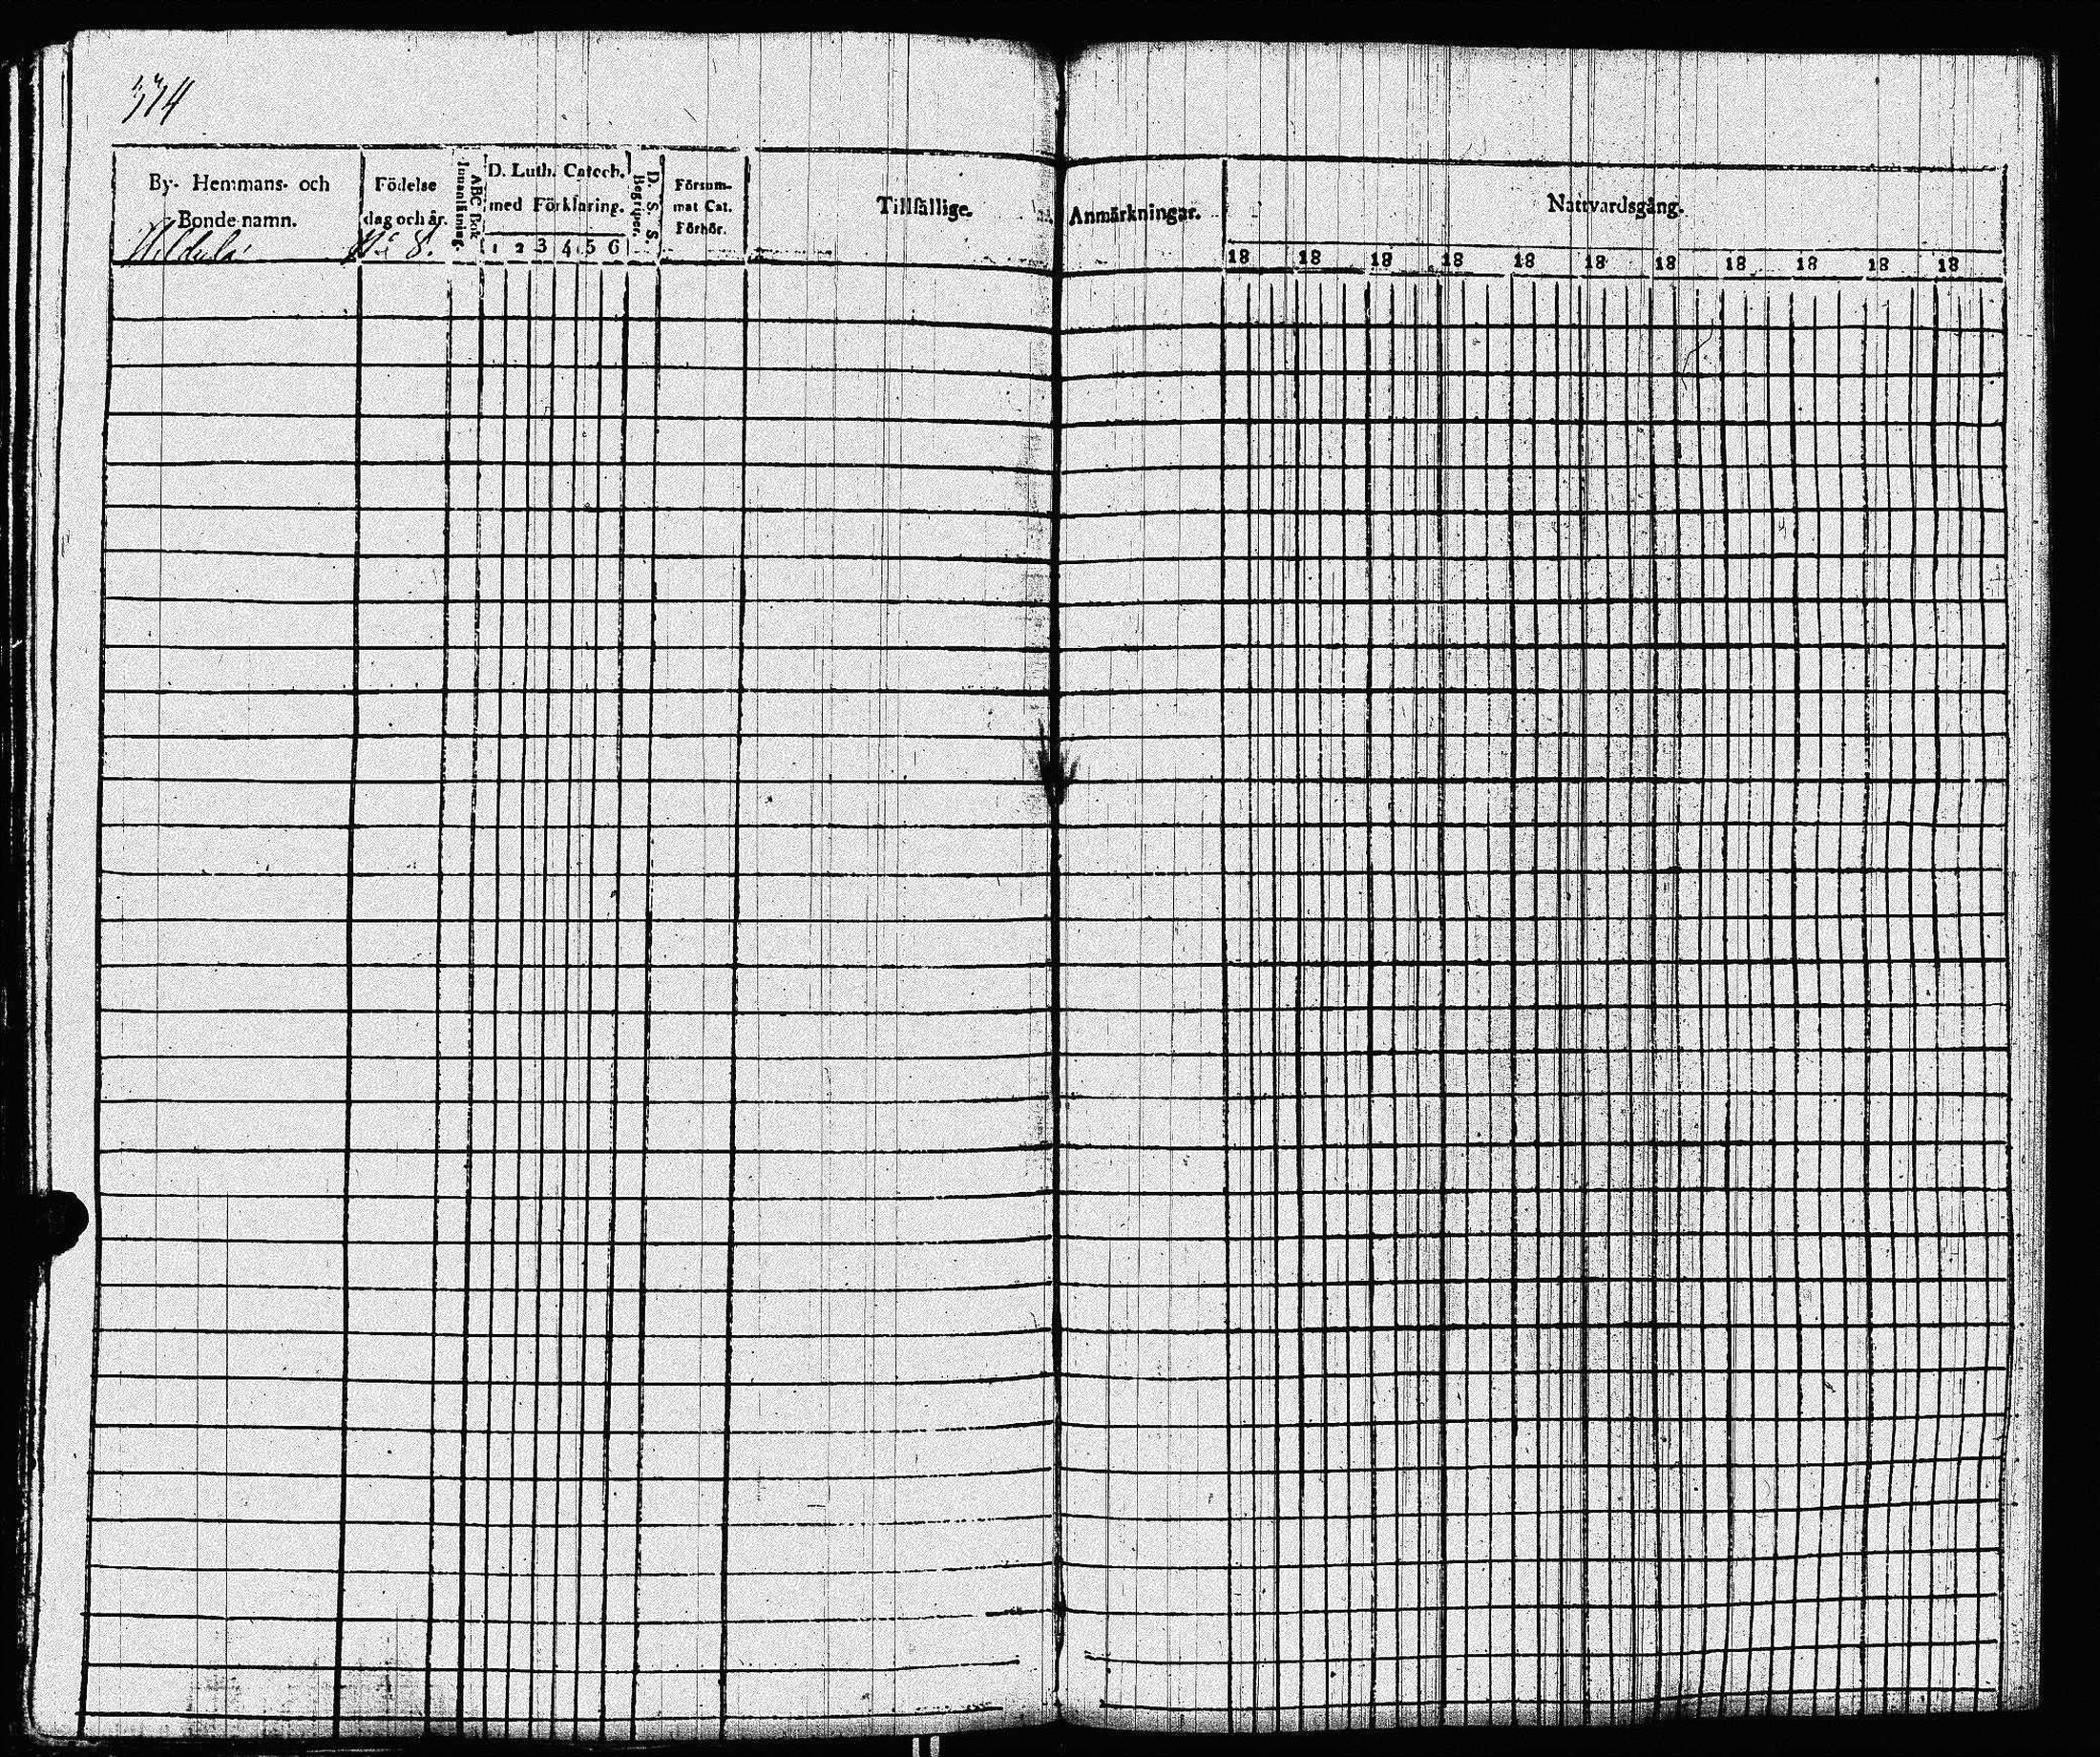 374
By- Hemmans- och
Bonde namn.
Födelse
dag och år.
Innanläsning.
ABC Bok
D. Luth. Catech.
med Förklaring.
1 2 3 4 5 6
Begriper.
D. S. S.
Försum-
mat Cat.
Förhör.
Tillfällige
Anmärkningar.
Nattvardsgång.
No 8.
18 18 18 18 18 18 18 18 18 18 18